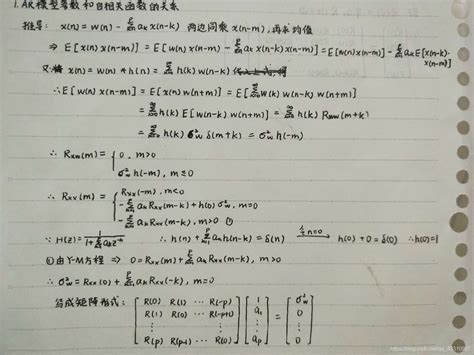 1. AR模型参数和自相关函数的关系
推导: x(n) = w(n) - Σ_{k=1}^{p} a_k x(n-k) 两边同乘 x(n-m), 再求均值
⇒ E[x(n) x(n-m)] = E[w(n) x(n-m) - Σ_{k=1}^{p} a_k x(n-k) x(n-m)] = E[w(n) x(n-m)] - Σ_{k=1}^{p} a_k E[x(n-k)·x(n-m)]
又∵ x(n) = w(n) * h(n) = Σ_{k=0}^{∞} h(k) w(n-k)
∴ E[w(n) x(n-m)] = E[x(n) w(n+m)] = E[Σ_{k=0}^{∞} h(k) w(n-k) w(n+m)]
= Σ_{k=0}^{∞} h(k) E[w(n-k) w(n+m)] = Σ_{k=0}^{∞} h(k) Rww(m+k)
= Σ_{k=0}^{∞} h(k) σ_w² δ(m+k) = σ_w² h(-m)
∴ Rxw(m) = { 0, m>0
σ_w² h(-m), m≤0
∴ Rxx(m) = { Rxx(-m), m<0
-Σ_{k=1}^{p} a_k Rxx(m-k) + h(0) σ_w², m=0
-Σ_{k=1}^{p} a_k Rxx(m-k), m>0 ①
∵ H(z) = 1/(1+Σ_{k=1}^{p} a_k z^{-k}) ∴ h(n) + Σ_{k=1}^{p} a_k h(n-k) = δ(n) 令n=0 ⇒ h(0) + 0 = δ(0) ∴ h(0)=1
①由Y-M方程 ⇒ 0 = Rxx(m) + Σ_{k=1}^{p} a_k Rxx(m-k), m>0
∴ σ_w² = Rxx(0) + Σ_{k=1}^{p} a_k Rxx(-k), m=0
写成矩阵形式:
[ R(0) R(1) ··· R(-p) ] [ 1 ] = [ σ_w² ]
[ R(1) R(0) ··· R(-p+1) ] [ a₁ ] [ 0 ]
[ ⋮ ⋮ ] [ ⋮ ] [ ⋮ ]
[ R(p) R(p-1) ··· R(0) ] [ a_p ] [ 0 ]